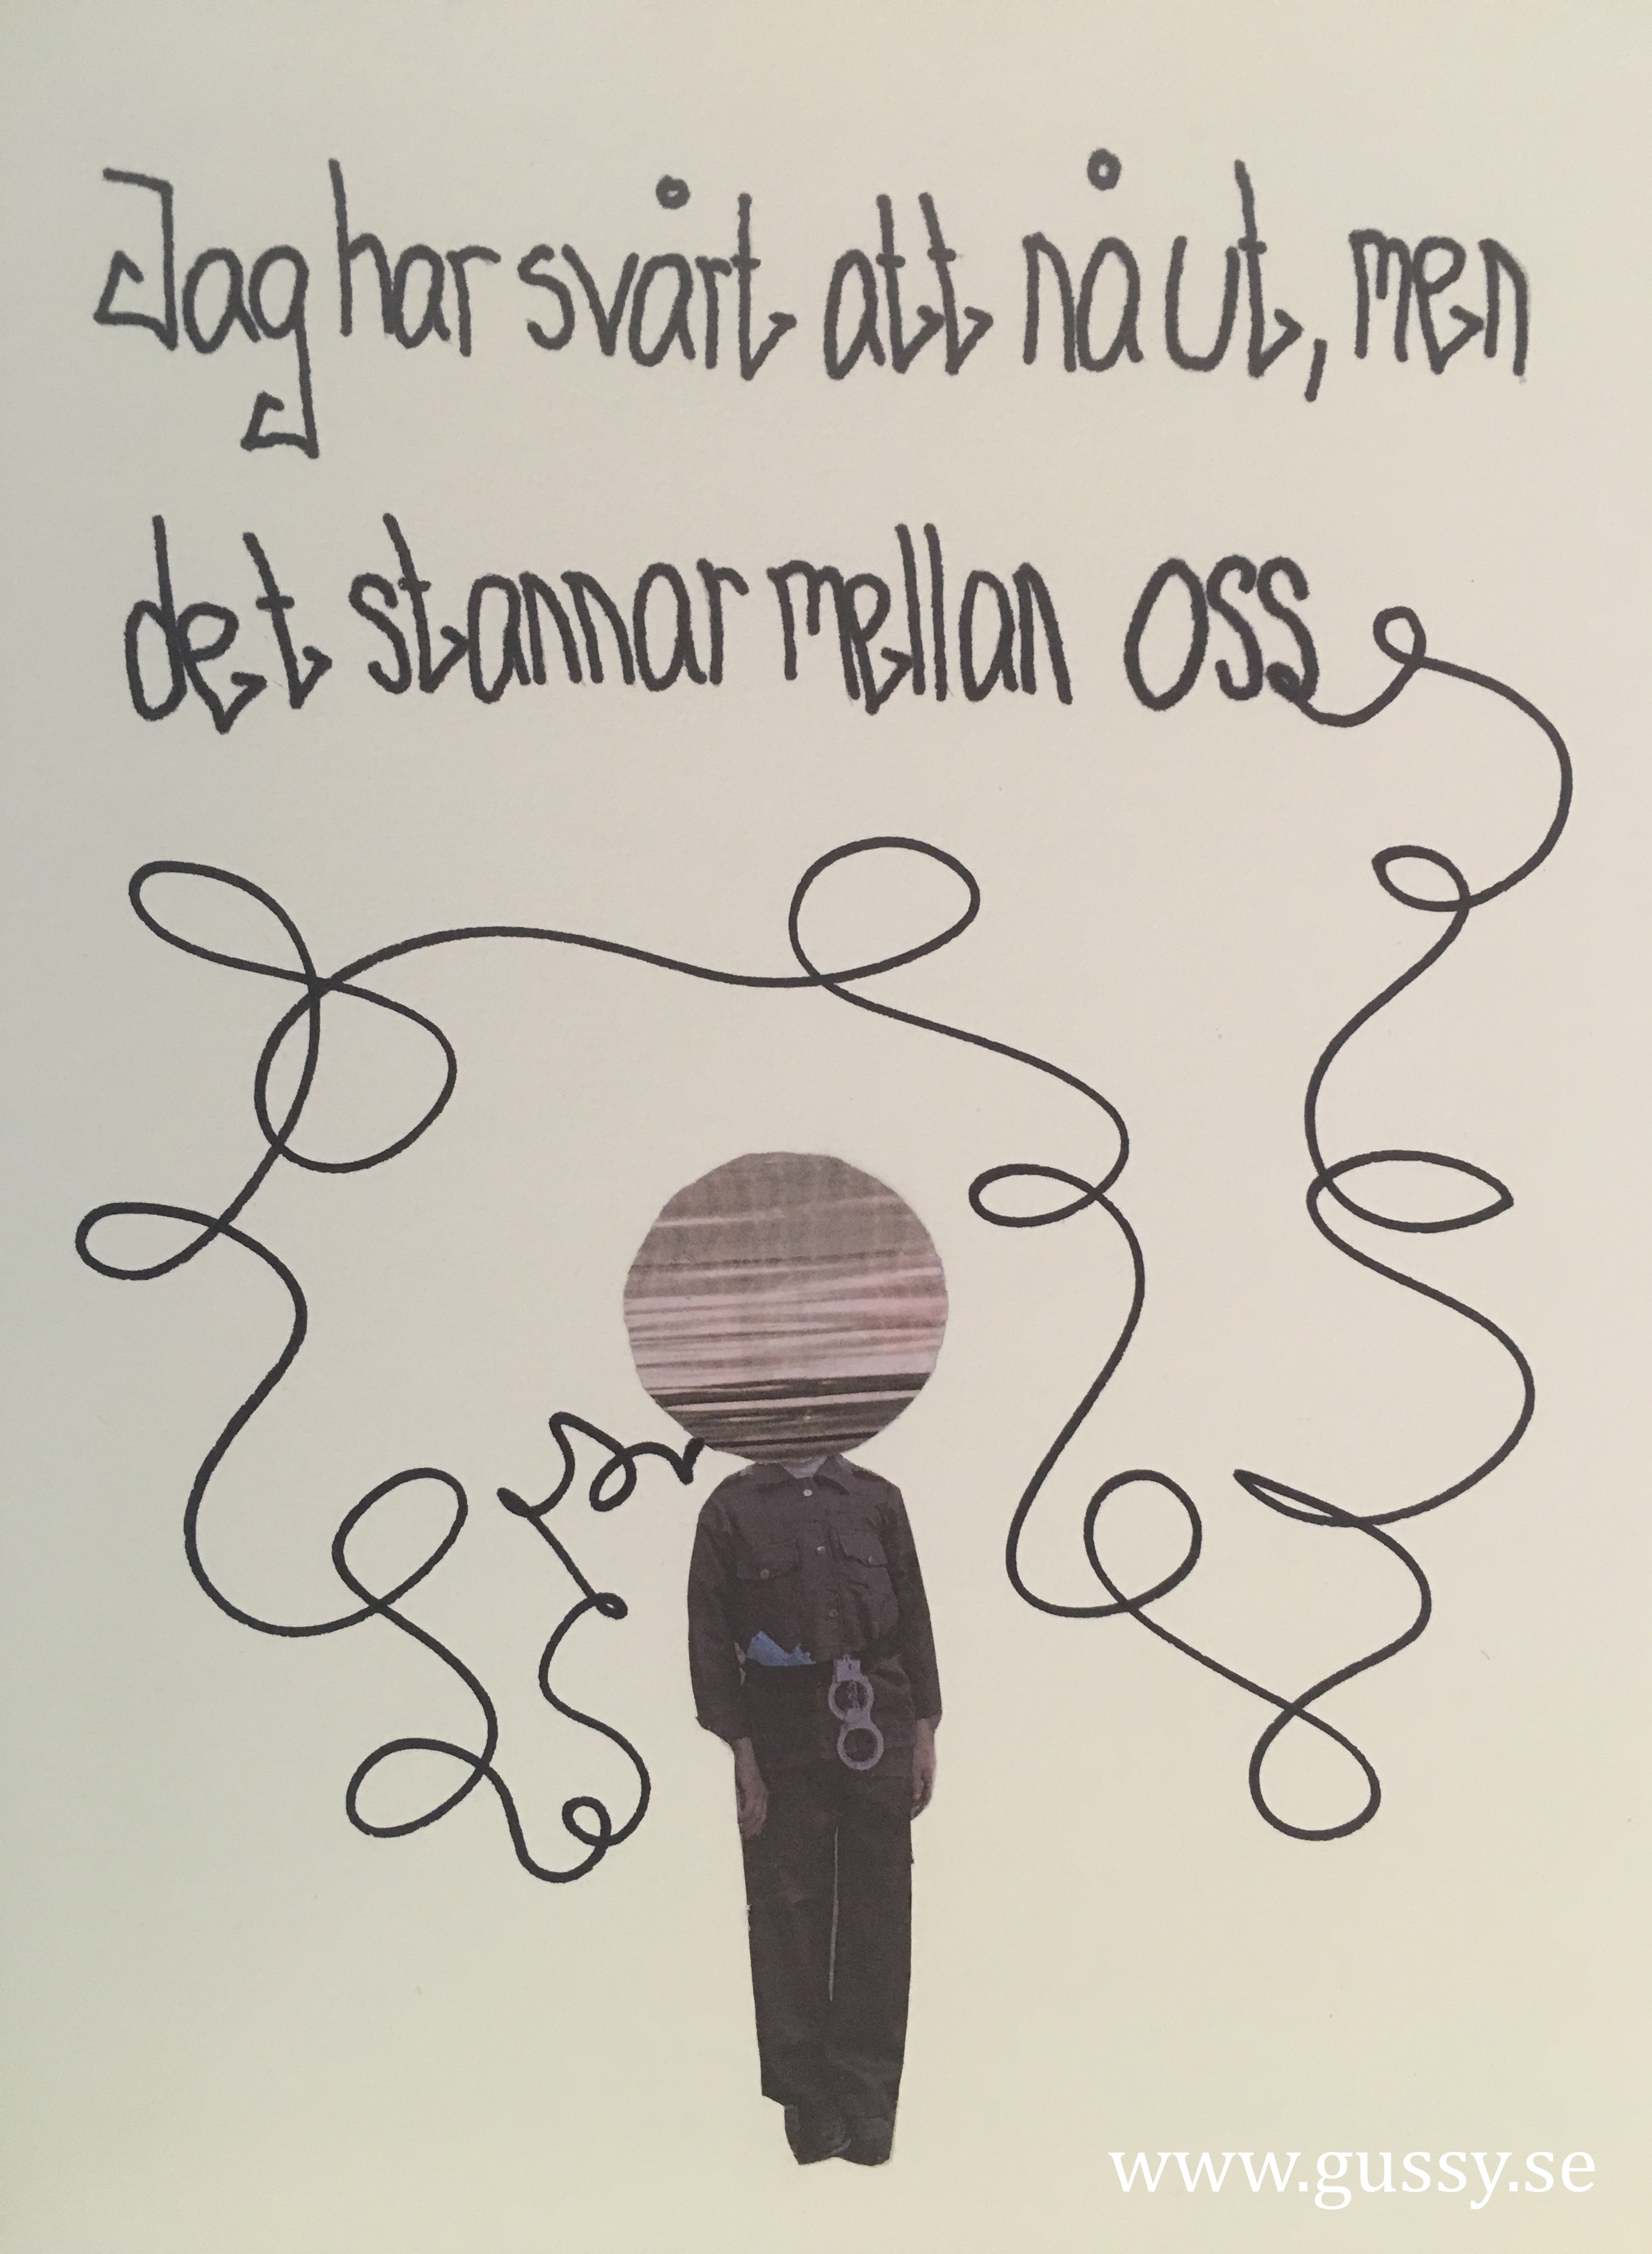 Jag har svårt att nå ut, men
det stannar mellan oss
www.gussy.se